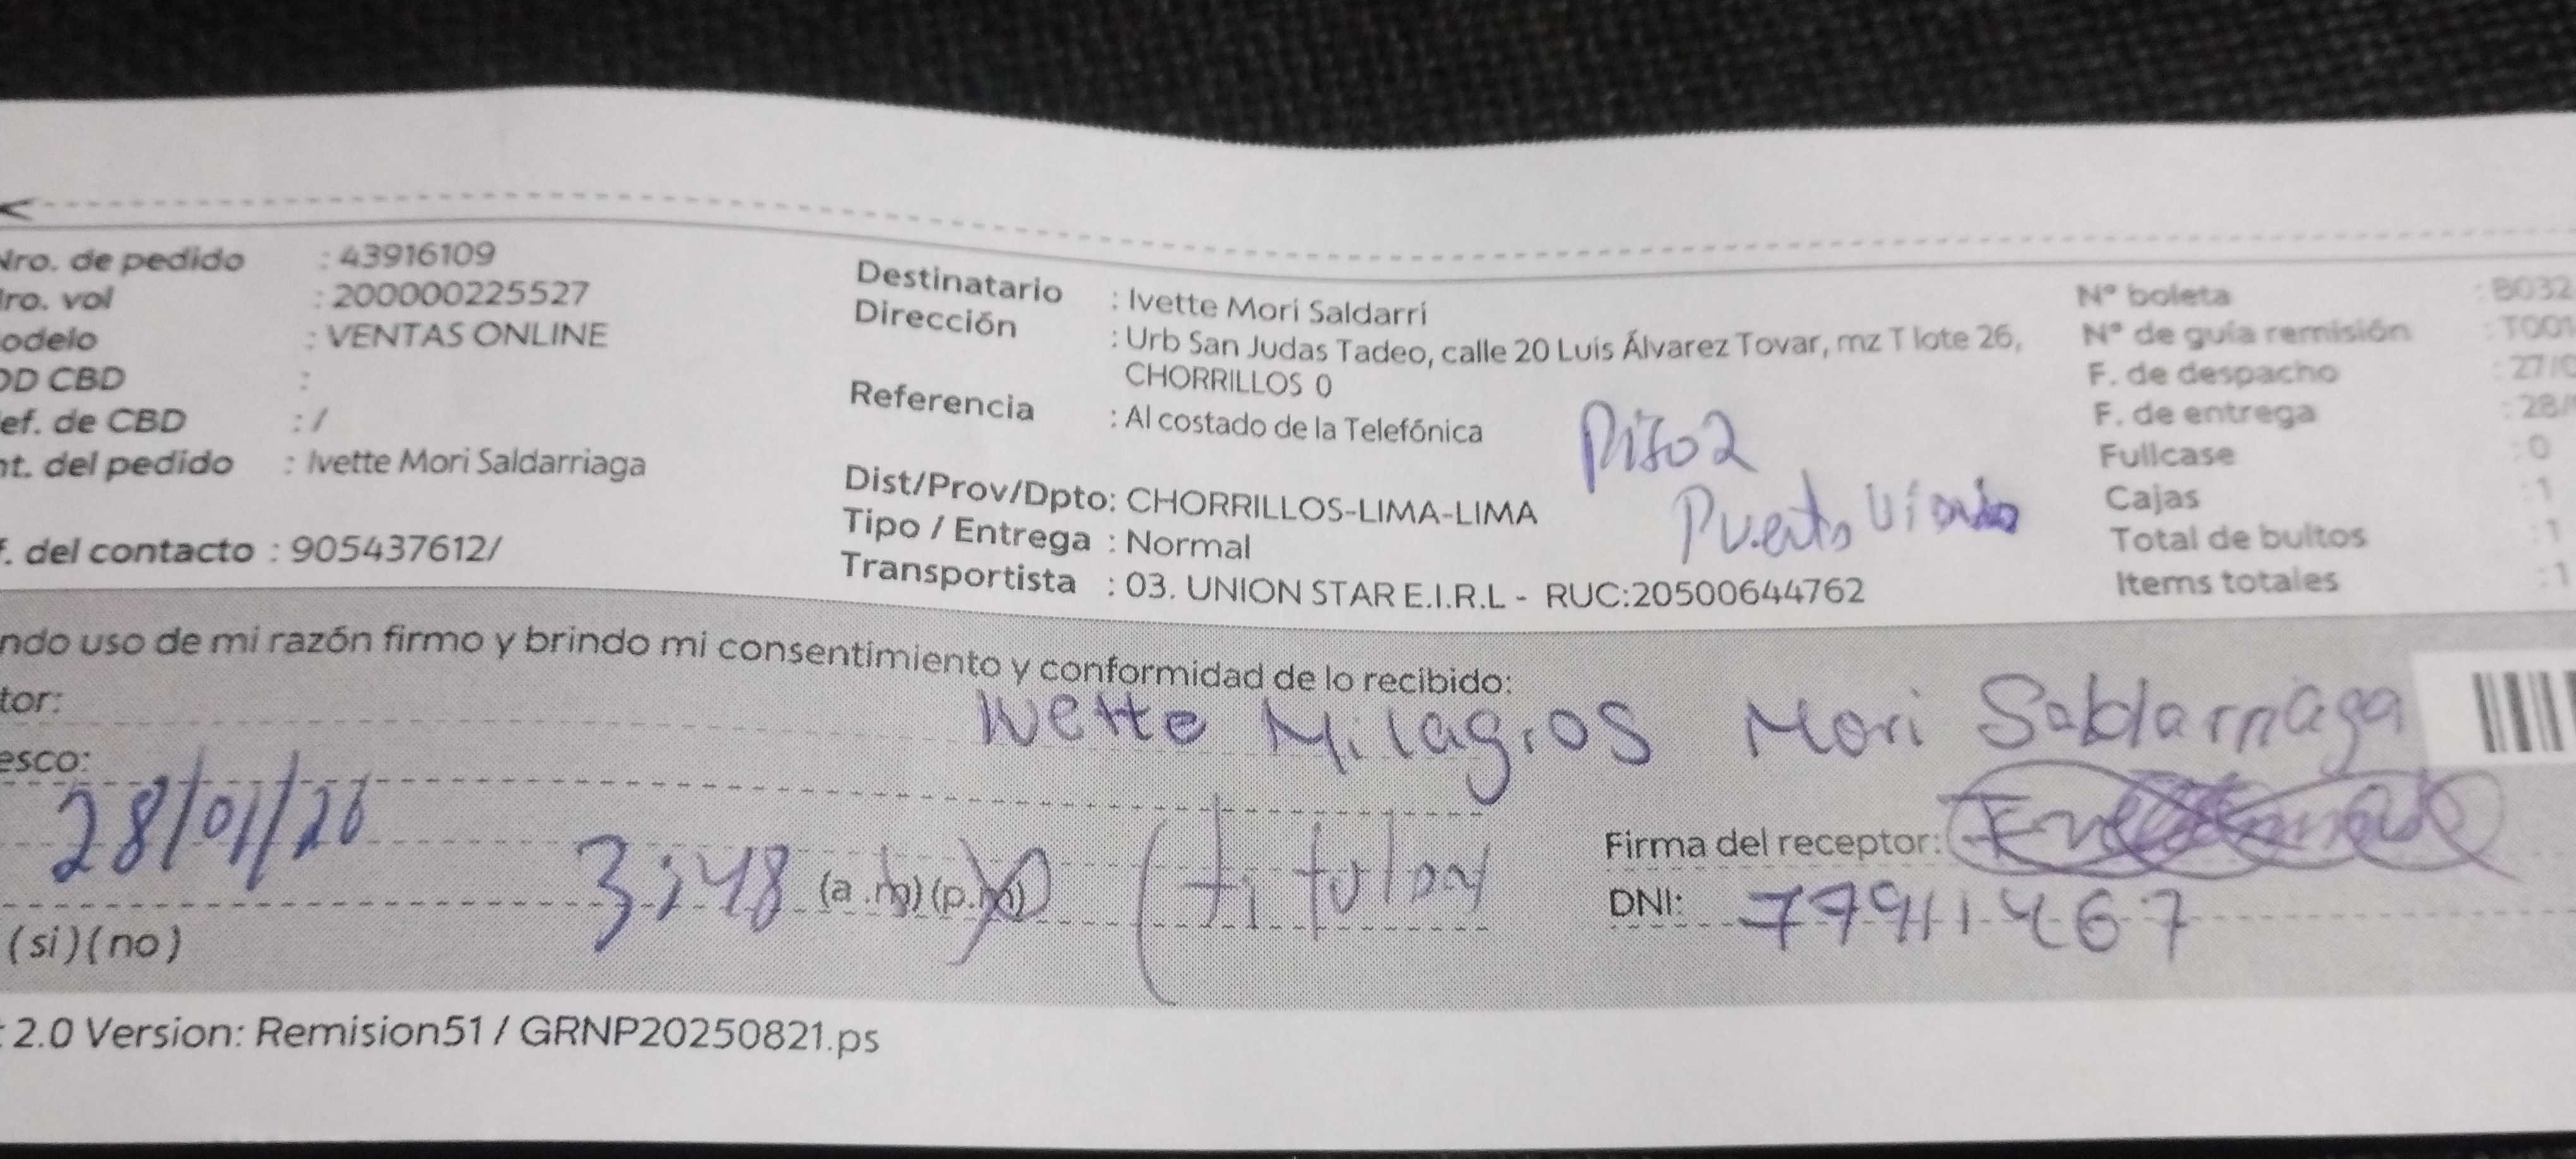 Nro. de pedido : 43916109
Nro. vol : 200000225527
odelo : VENTAS ONLINE
OD CBD :
ef. de CBD : /
nt. del pedido : Ivette Mori Saldarriaga
f. del contacto : 905437612/
Destinatario : Ivette Mori Saldarri
Dirección : Urb San Judas Tadeo, calle 20 Luis Álvarez Tovar, mz T lote 26,
CHORRILLOS 0
Referencia : Al costado de la Telefónica
Piso 2
Puerta
Dist/Prov/Dpto: CHORRILLOS-LIMA-LIMA
Tipo / Entrega : Normal
Transportista : 03. UNION STAR E.I.R.L - RUC:20500644762
N° boleta : B032
N° de guía remisión : T001
F. de despacho : 27/0
F. de entrega : 28/
Fullcase : 0
Cajas : 1
Total de bultos : 1
Items totales : 1
ndo uso de mi razón firmo y brindo mi consentimiento y conformidad de lo recibido:
tor: Ivette Milagros Mori Saldarriaga
esco:
28/01/26
3:48 (a.m) (p.m) (titular
Firma del receptor:
DNI:
(si)(no)
2.0 Version: Remision51 / GRNP20250821.ps